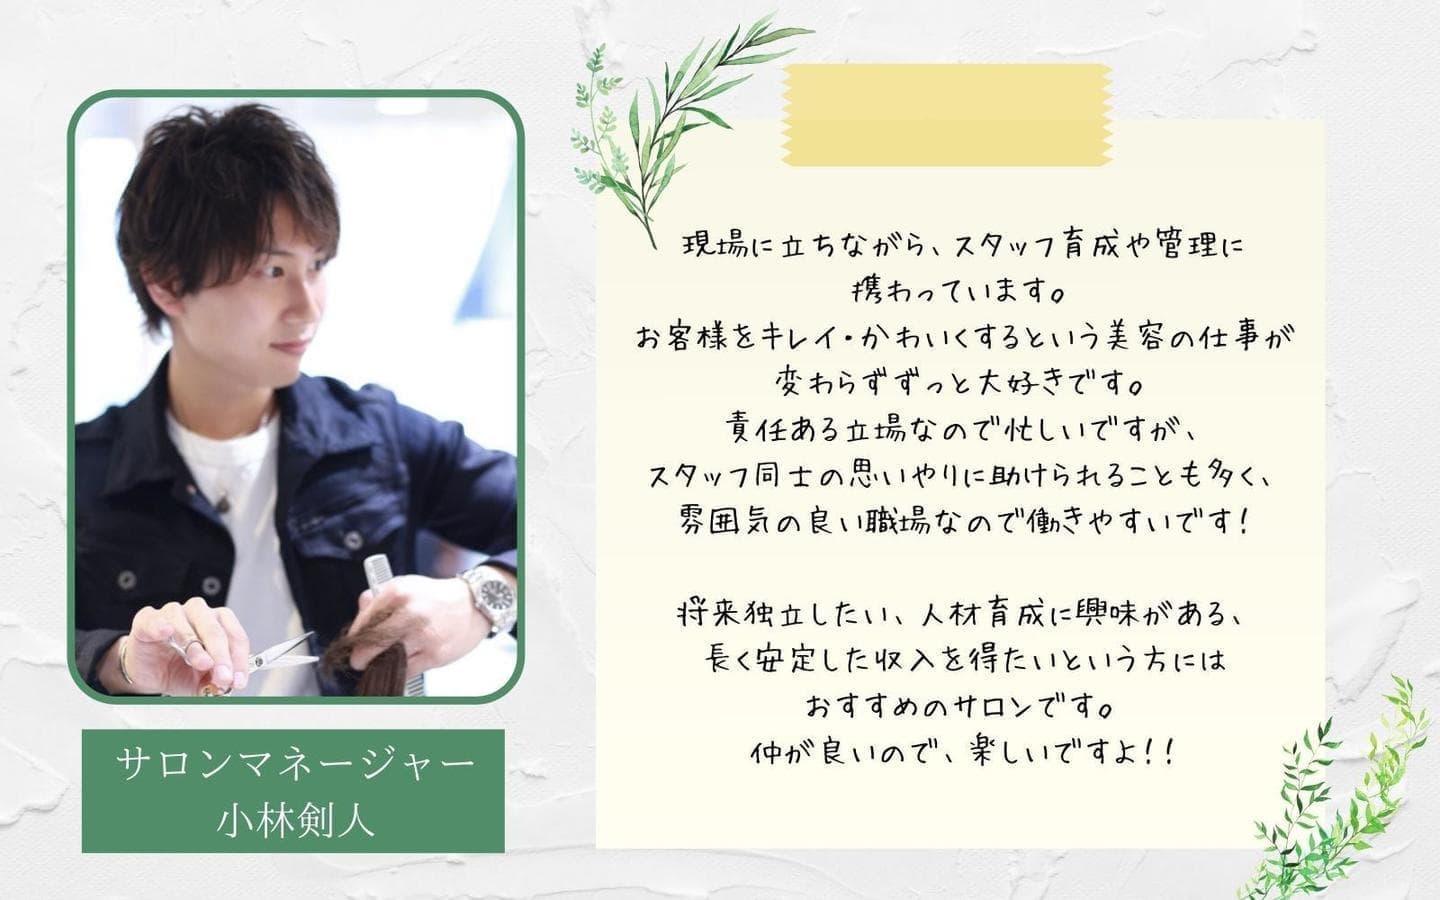 現場に立ちながら、スタッフ育成や管理に
携わっています。
お客様をキレイ・かわいくするという美容の仕事が
変わらずずっと大好きです。
責任ある立場なので忙しいですが、
スタッフ同士の思いやりに助けられることも多く、
雰囲気の良い職場なので働きやすいです！
将来独立したい、人材育成に興味がある、
長く安定した収入を得たいという方には
おすすめのサロンです。
仲が良いので、楽しいですよ！！
サロンマネージャー
小林剣人